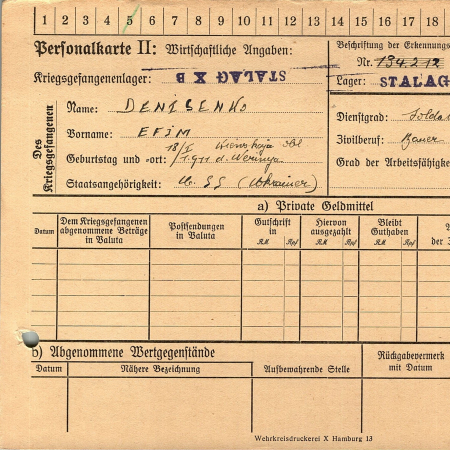 1 2 3 4 5 6 7 8 9 10 11 12 13 14 15 16 17 18
Personalkarte II: Wirtschaftliche Angaben:
Beschriftung der Erkennungs
Nr. 134212
Kriegsgefangenenlager: STALAG X B
Lager: STALAG
Des Kriegsgefangenen
Name: DENISENKO
Vorname: EFIM
Geburtstag und -ort: 18/I 1911 d.
Staatsangehörigkeit: (Ukrainer)
Dienstgrad: Solda
Zivilberuf: Bauer
Grad der Arbeitsfähigke
a) Private Geldmittel
Datum
Dem Kriegsgefangenen abgenommene Beträge in Valuta
Postsendungen in Valuta
Gutschrift in RM Rpf
Hiervon ausgezahlt RM Rpf
Bleibt Guthaben RM Rpf
der
b) Abgenommene Wertgegenstände
Datum
Nähere Bezeichnung
Aufbewahrende Stelle
Rückgabevermerk mit Datum
Wehrkreisdruckerei X Hamburg 13